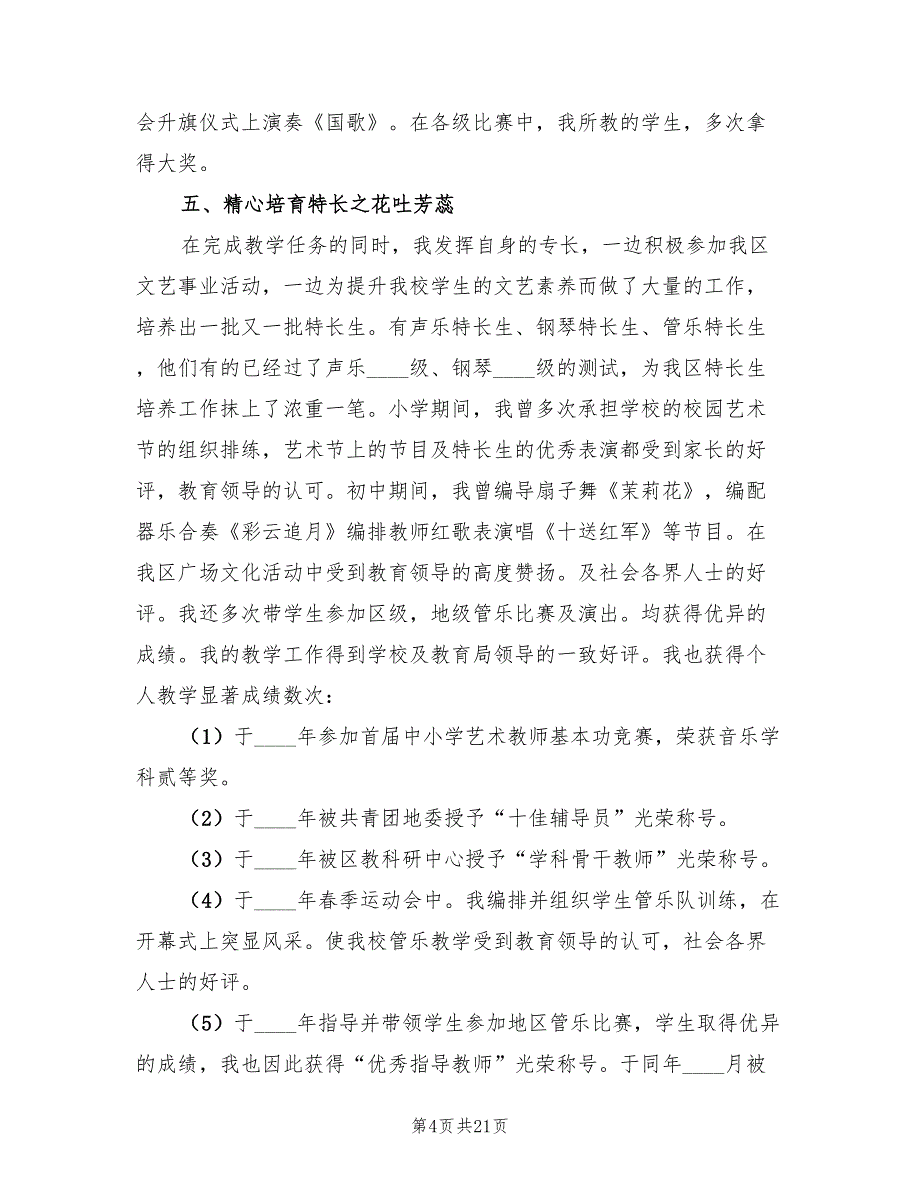 会升旗仪式上演奏《国歌》。在各级比赛中，我所教的学生，多次拿
得大奖。
五、精心培育特长之花吐芳蕊
在完成教学任务的同时，我发挥自身的专长，一边积极参加我区
文艺事业活动，一边为提升我校学生的文艺素养而做了大量的工作，
培养出一批又一批特长生。有声乐特长生、钢琴特长生、管乐特长生
，他们有的已经过了声乐____级、钢琴____级的测试，为我区特长生
培养工作抹上了浓重一笔。小学期间，我曾多次承担学校的校园艺术
节的组织排练，艺术节上的节目及特长生的优秀表演都受到家长的好
评，教育领导的认可。初中期间，我曾编导扇子舞《茉莉花》，编配
器乐合奏《彩云追月》编排教师红歌表演唱《十送红军》等节目。在
我区广场文化活动中受到教育领导的高度赞扬。及社会各界人士的好
评。我还多次带学生参加区级，地级管乐比赛及演出。均获得优异的
成绩。我的教学工作得到学校及教育局领导的一致好评。我也获得个
人教学显著成绩数次：
（1）于____年参加首届中小学艺术教师基本功竞赛，荣获音乐学
科贰等奖。
（2）于____年被共青团地委授予“十佳辅导员”光荣称号。
（3）于____年被区教科研中心授予“学科骨干教师”光荣称号。
（4）于____年春季运动会中。我编排并组织学生管乐队训练，在
开幕式上突显风采。使我校管乐教学受到教育领导的认可，社会各界
人士的好评。
（5）于____年指导并带领学生参加地区管乐比赛，学生取得优异
的成绩，我也因此获得“优秀指导教师”光荣称号。于同年____月被
第4页共21页